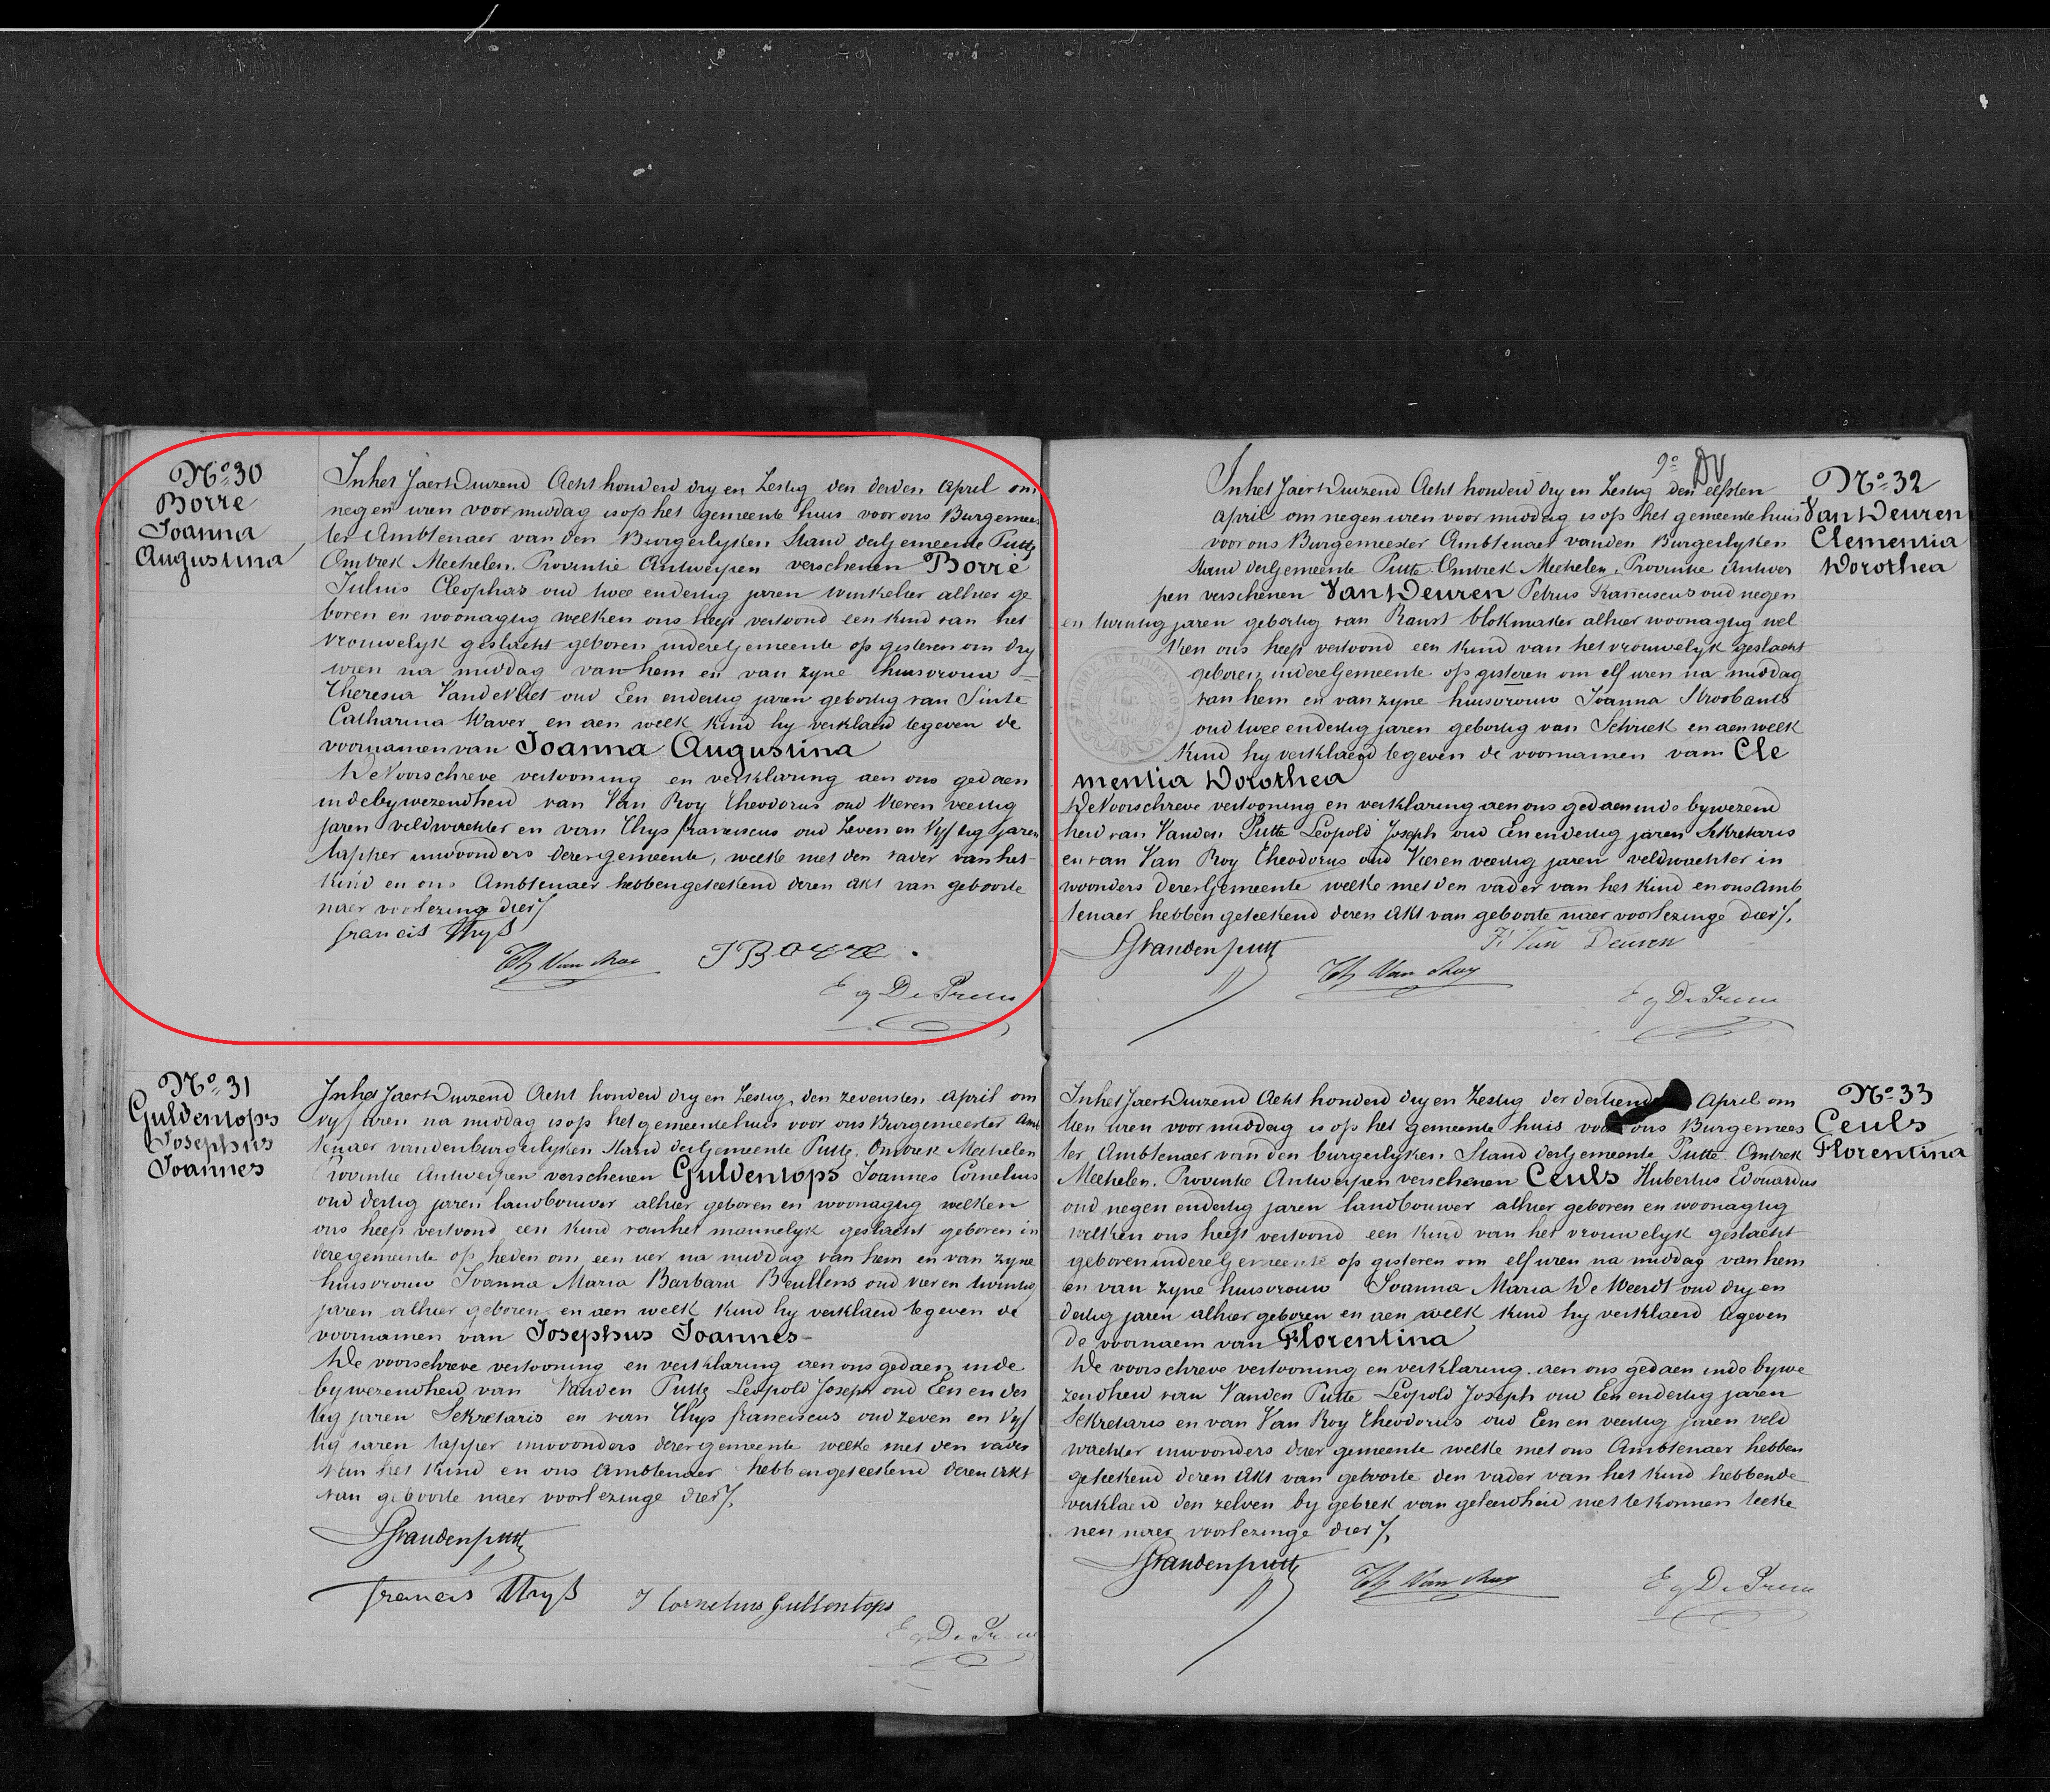 N° 30
Borre
Joanna
Augustina
In het Jaer Duizend Acht honderd dry en Zestig den derden April om
negen uren voormiddag is op het gemeente huis voor ons Burgemees
ter Ambtenaer van den Burgerlyken Stand der Gemeente Putte
Omtrek Mechelen. Provintie Antwerpen verschenen Borre
Julius Cleophas oud twee endertig jaren winkelier alhier ge
boren en woonagtig welken ons heeft vertoond een kind van het
vrouwelyk geslacht geboren in dere Gemeente op gisteren om dry
uren na middag van hem en van zyne huisvrouw
Theresia Vande Vliet oud Een endertig jaren gebortig van Sinte
Catharina Waver en aen welk kind hy verklaerd te geven de
voornamen van Joanna Augustina
De Voorschreve vertooning en verklaring aen ons gedaen
in de bywezendheid van Van Roy Theodorus oud Vier en veertig
jaren veldwachter en van Thys franciscus oud Zeven en Vyftig jaren
tapper inwoonders derer gemeente, welke met den vader van het
kind en ons Ambtenaer hebben geteekend deren akt van geboorte
naer voorlezinge dier/.
francis Thyß
Th Van Roy J Borre.
E g De Preter
N° 31
Guldentops
Josephus
Joannes
In het Jaer Duizend Acht honderd dry en Zestig, den zevensten April om
vyf uren na middag is op het gemeentehuis voor ons Burgemeester Amb
tenaer van den burgerlyken Stand der Gemeente Putte. Omtrek Mechelen
Provintie Antwerpen verschenen Guldentops Joannes Cornelius
oud dertig jaren landbouwer alhier geboren en woonagtig welken
ons heeft vertoond een kind van het mannelyk geslacht geboren in
dere gemeente op heden om een uer na middag van hem en van zyne
huisvrouw Joanna Maria Barbara Beullens oud vier en twintig
jaren alhier geboren en aen welk kind hy verklaerd te geven de
voornamen van Josephus Joannes
De voorschreve vertooning en verklaring aen ons gedaen in de
bywezendheid van Vanden Putte Leopold Joseph oud Een en der
tig jaren Sekretaris en van Thys franciscus oud zeven en Vyf
tig jaren tapper inwoonders derer gemeente welke met den vader
van het kind en ons Ambtenaer hebben geteekend deren akt
van geboorte naer voorlezinge dier/.
LJVandenputte
francis Thyß J Cornelius Gullentops
E g De Preter
9°
N° 32
Van Deuren
Clementia
Dorothea
In het Jaer Duizend Acht honderd dry en Zestig den elfsten
April om negen uren voor middag is op het gemeentehuis
voor ons Burgemeester Ambtenaer van den Burgerlyken
Stand der Gemeente Putte. Omtrek Mechelen. Provintie Antwer
pen verschenen Van Deuren Petrus Franciscus oud negen
en twintig jaren geboortig van Ranst blokmaker alhier woonagtig wel
ken ons heeft vertoond een kind van het vrouwelyk geslacht
geboren in dere Gemeente op gisteren om elf uren na middag
van hem en van zyne huisvrouw Joanna Stroobants
oud twee endertig jaren geboortig van Schriek en aen welk
kind hy verklaerd te geven de voornamen van Cle
mentia Dorothea
De Voorschreve vertooning en verklaring aen ons gedaen in de bywezend
heid van Vanden Putte Leopold Joseph oud Een endertig jaren Sekretaris
en van Van Roy Theodorus oud Vier en veertig jaren veldwachter in
woonders derer Gemeente welke met den vader van het kind en ons Amb
tenaer hebben geteekend deren akt van geboorte naer voorlezinge dier/.
LJVandenputte F. Van Deuren
Th Van Roy
E g De Preter
N° 33
Ceuls
Florentina
In het Jaer Duizend Acht honderd dry en Zestig der dertiende April om
tien uren voor middag is op het gemeente huis voor ons Burgemees
ter, Ambtenaer van den burgerlyken Stand der Gemeente Putte. Omtrek
Mechelen. Provintie Antwerpen verschenen Ceuls Hubertus Edouardus
oud negen endertig jaren landbouwer alhier geboren en woonagtig
welken ons heeft vertoond een kind van het vrouwelyk geslacht
geboren in dere Gemeente op gisteren om elf uren na middag van hem
en van zyne huisvrouw Joanna Maria De Weerdt oud dry en
dertig jaren alhier geboren en aen welk kind hy verklaerd te geven
de voornaem van Florentina
De voorschreve vertooning en verklaring aen ons gedaen in de bywe
zendheid van Vanden Putte Leopold Joseph oud Een endertig jaren
Sekretaris en van Van Roy Theodorus oud Een en veertig jaren veld
wachter inwoonders dier gemeente welke met ons Ambtenaer hebben
geteekend deren akt van geboorte den vader van het kind hebbende
verklaerd den zelven by gebrek van geleerdheid niet te konnen teeke
nen naer voorlezinge dier/.
LJVandenputte Th Van Roy E g De Preter